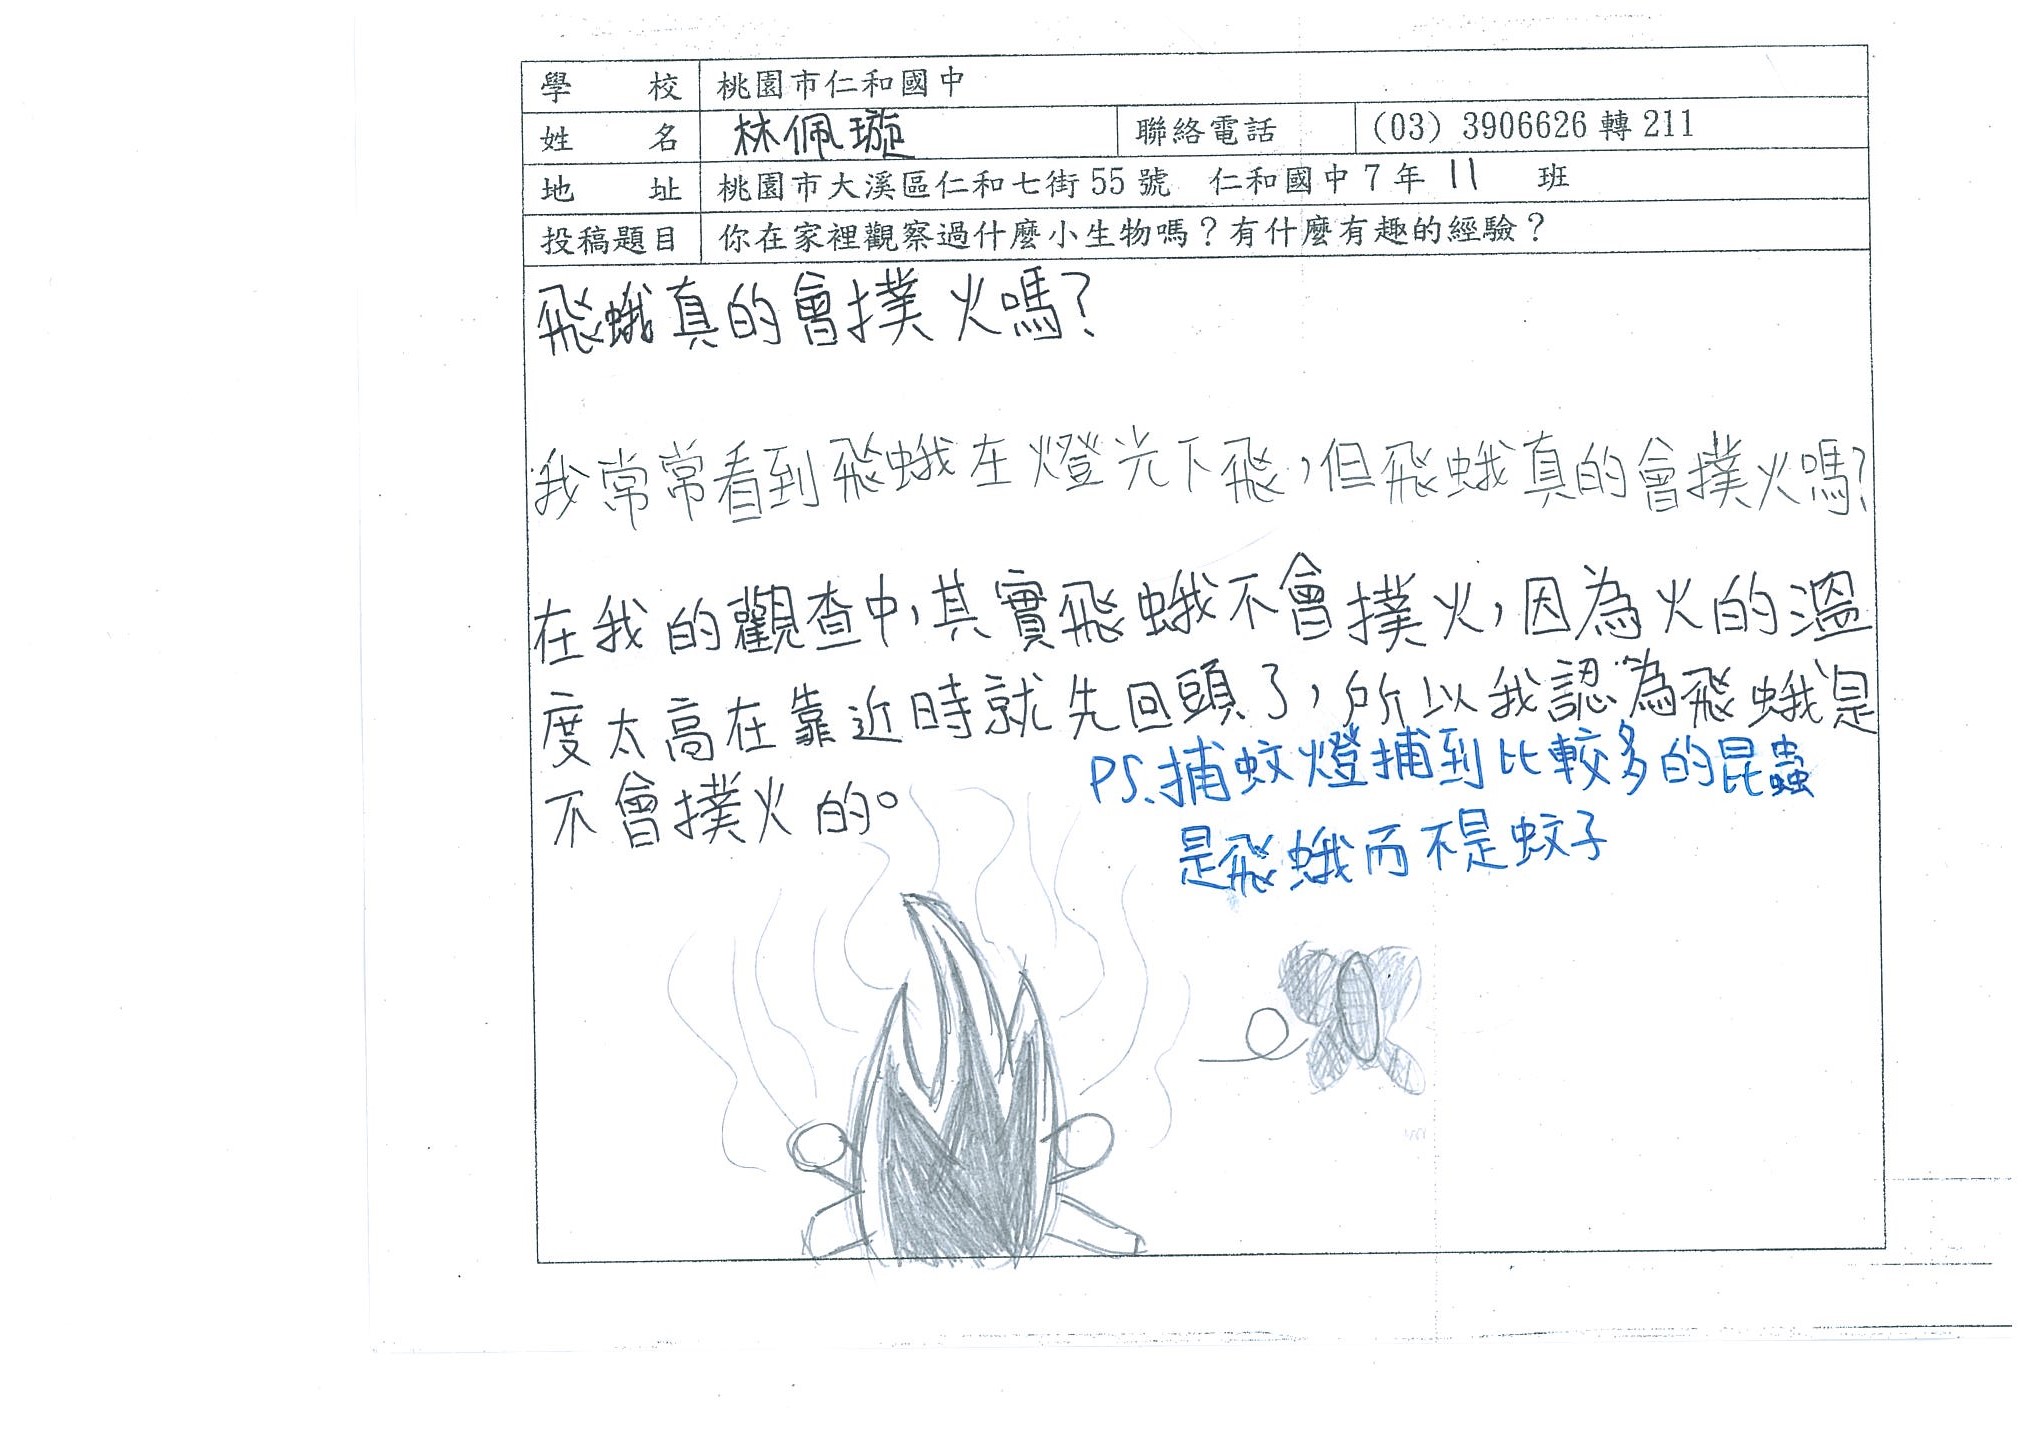 學 校 桃園市仁和國中
姓 名 林佩璇 聯絡電話 (03) 3906626 轉 211
地 址 桃園市大溪區仁和七街 55 號 仁和國中 7 年 11 班
投稿題目 你在家裡觀察過什麼小生物嗎？有什麼有趣的經驗？
飛蛾真的會撲火嗎?
我常常看到飛蛾在燈光下飛，但飛蛾真的會撲火嗎?
在我的觀查中，其實飛蛾不會撲火，因為火的溫
度太高在靠近時就先回頭了，所以我認為飛蛾是
不會撲火的。
PS.捕蚊燈捕到比較多的昆蟲
是飛蛾而不是蚊子